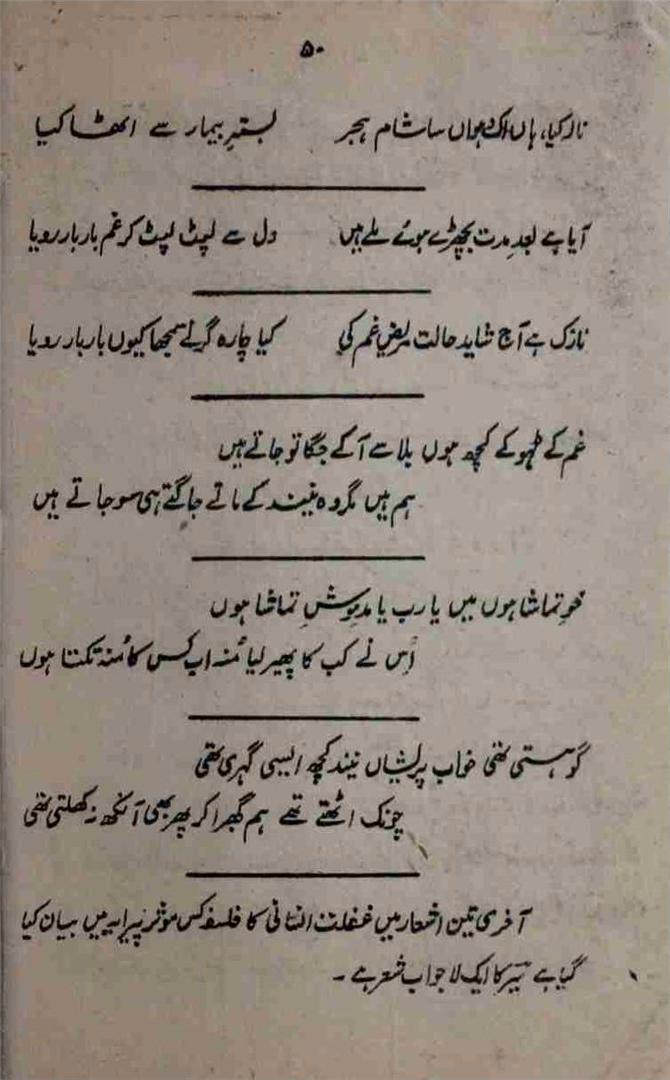 ۵۰
نالہ کیا، ہاں اک دھواں سا شام ہجر بسترِ بیمار سے اٹھا کیا
آیا ہے بعد مدت بچھڑے ہوئے ملے ہیں دل سے لپٹ لپٹ کر غم بار بار رویا
نازک ہے آج شاید حالت مریضِ غم کی کیا چارہ گر نے سمجھا کیوں بار بار رویا
غم کے ٹہوکے کچھ ہوں بلا سے آ کے جگا تو جاتے ہیں
ہم ہیں مگر وہ نیند کے ماتے جاگتے ہی سو جاتے ہیں
محوِ تماشا ہوں میں یا رب یا مدہوشِ تماشا ہوں
اُس نے کب کا پھیر لیا مُنہ اب کس کا مُنہ تکتا ہوں
گو ہستی تھی خواب پریشاں نیند کچھ ایسی گہری تھی
چونک اٹھتے تھے ہم گھبرا کر پھر بھی آنکھ نہ کھلتی تھی
آخری تین اشعار میں غفلت انسانی کا فلسفہ کس موثر پیرایہ میں بیان کیا
گیا ہے میر کا ایک لاجواب شعر ہے ۔